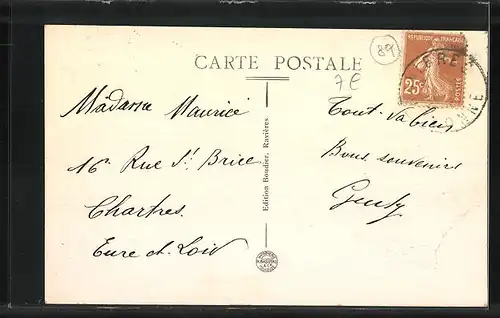 CARTE POSTALE
89
7E
REPUBLIQUE FRANCAISE
25c
POSTES
Madame Maurice
16 Rue St Brice
Chartres
Eure et Loir
Edition Boudier, Ravières
Tout va bien
Bons souvenirs